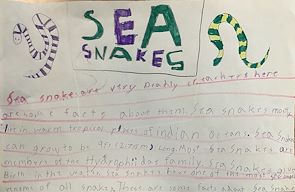 SEA
SNAKES
Sea snake are very deadly creachers here
are some facts about them. Sea Snakes mostly
live in warm tropical places of indian Oceans. Sea Snakes
can grow to be 9ft (2.7m) long. Most Sea Snakes are
members of the Hydrophiidas family. Sea Snakes give
Birth in the water. Sea Snakes have one of the most
of all snakes. These are some facts about Sea Snakes